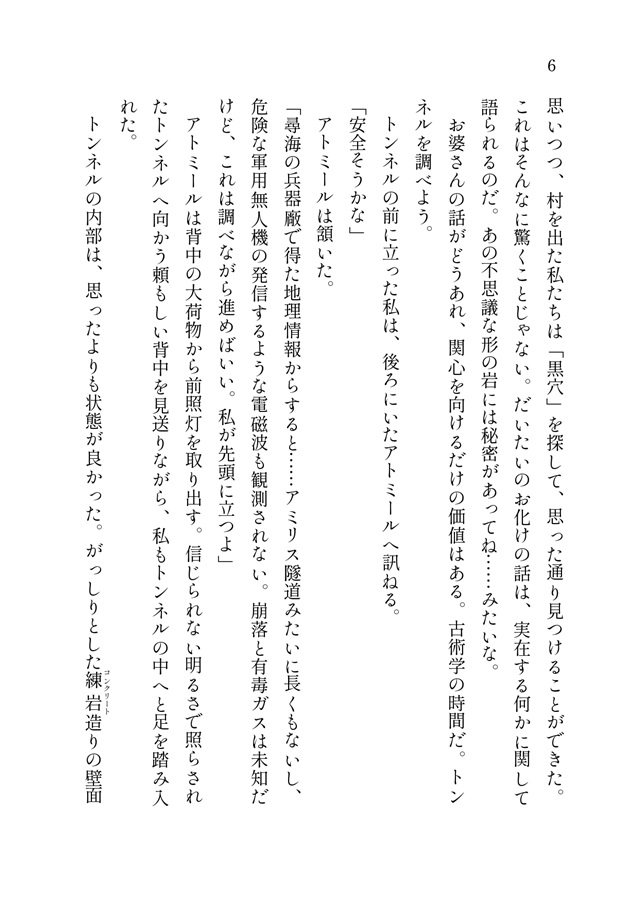 6
思いつつ、村を出た私たちは「黒穴」を探して、思った通り見つけることができた。
これはそんなに驚くことじゃない。だいたいのお化けの話は、実在する何かに関して
語られるのだ。あの不思議な形の岩には秘密があってね……みたいな。
お婆さんの話がどうあれ、関心を向けるだけの価値はある。古術学の時間だ。トン
ネルを調べよう。
トンネルの前に立った私は、後ろにいたアトミールへ訊ねる。
「安全そうかな」
アトミールは頷いた。
「尋海の兵器廠で得た地理情報からすると……アミリス隧道みたいに長くもないし、
危険な軍用無人機の発信するような電磁波も観測されない。崩落と有毒ガスは未知だ
けど、これは調べながら進めばいい。私が先頭に立つよ」
アトミールは背中の大荷物から前照灯を取り出す。信じられない明るさで照らされ
たトンネルへ向かう頼もしい背中を見送りながら、私もトンネルの中へと足を踏み入
れた。
トンネルの内部は、思ったよりも状態が良かった。がっしりとした練岩造りの壁面
コンクリート